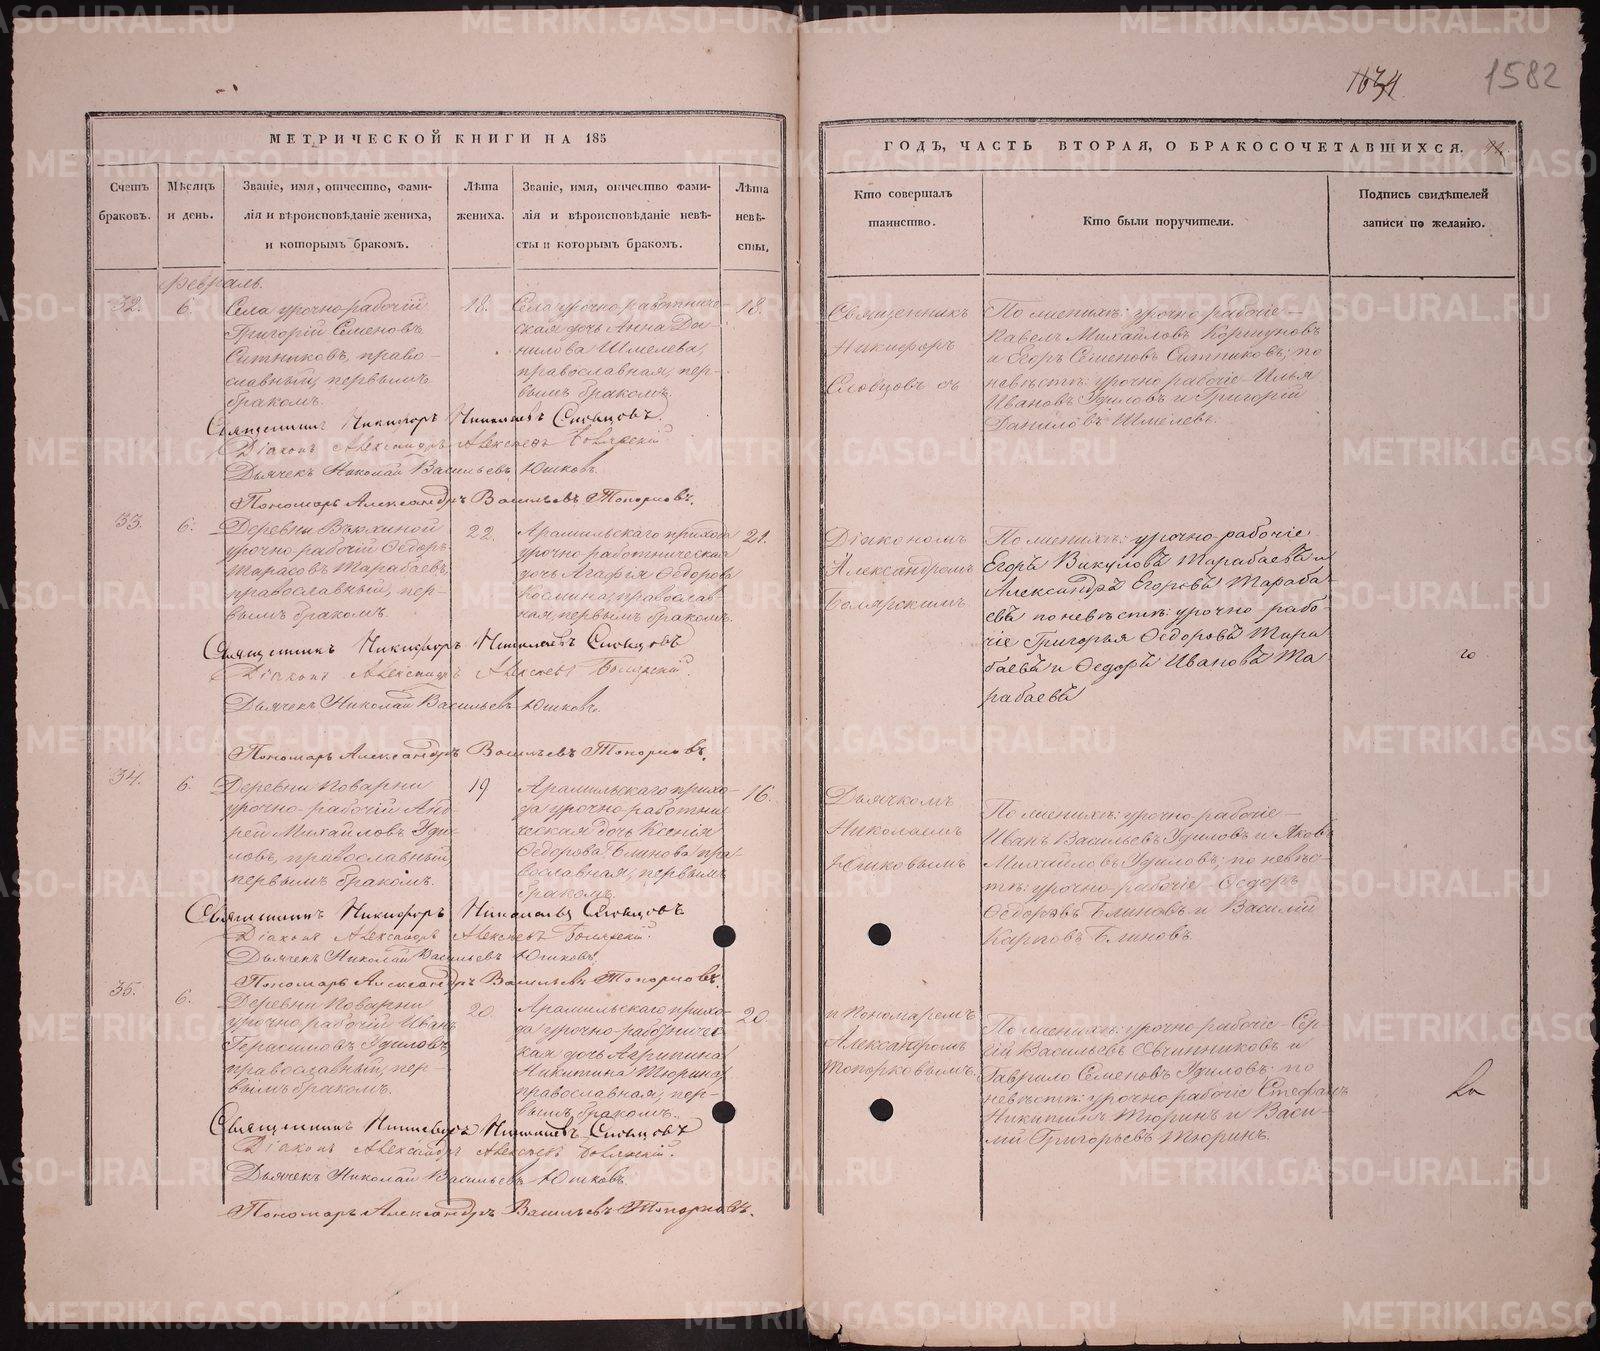 1634
1582
МЕТРИЧЕСКОЙ КНИГИ НА 185
Счетъ браковъ.
Мѣсяцъ и день.
Званіе, имя, отчество, фами-
лія и вѣроисповѣданіе жениха,
и которымъ бракомъ.
Лѣта жениха.
Званіе, имя, отчество фами-
лія и вѣроисповѣданіе невѣ-
сты и которымъ бракомъ.
Лѣта невѣ-
сты.
ГОДЪ, ЧАСТЬ ВТОРАЯ, О БРАКОСОЧЕТАВШИХСЯ.
Кто совершалъ
таинство.
Кто были поручители.
Подпись свидѣтелей
записи по желанію.
Февраль.
32.
6.
Села урочно-рабочій
Григорій Семеновъ
Ситниковъ, право-
славный, первымъ
бракомъ.
18.
Села урочно-работниче-
ская дочь Анна Да-
нилова Шмелева,
православная, пер-
вымъ бракомъ.
18.
Священникъ
Никифоръ
Словцовъ съ
По женихѣ: урочно-рабочіе —
Павелъ Михайловъ Коршуновъ
и Егоръ Семеновъ Ситниковъ; по
невѣстѣ: урочно рабочіе Илья
Ивановъ Удиловъ и Григорій
Даниловъ Шмелевъ.
Священникъ Никифоръ Николаевъ Словцовъ.
Діаконъ Александръ Алексѣевъ Боярскій.
Дьячекъ Николай Васильевъ Юшковъ.
Пономарь Александръ Васильевъ Топорковъ.
33.
6.
Деревни
урочно рабочій Ѳедоръ
Тарасовъ Тарабаевъ,
православный, пер-
вымъ бракомъ.
22.
Арамильскаго прихода
урочно-работническая
дочь Агафія Ѳедорова
Костина, православ-
ная, первымъ бракомъ.
21.
Діакономъ
Александромъ
Боярскимъ
По женихѣ: урочно-рабочіе
Егоръ Викуловъ Тарабаевъ и
Александръ Егоровъ Тараба-
евъ по невѣстѣ: урочно рабо-
чіе Григорья Ѳедоровъ Тара
баевъ и Ѳедоръ Ивановъ Та
рабаевъ
Священникъ Никифоръ Николаевъ Словцовъ
Діаконъ Александръ Алексѣевъ Боярскій.
Дьячекъ Николай Васильевъ Юшковъ.
Пономарь Александръ Васильевъ Топорковъ.
34.
6.
Деревни Поварни
урочно-рабочій Анд-
рей Михайловъ Уди-
ловъ, православный,
первымъ бракомъ.
19
Арамильскаго прихо-
да урочно-работни-
ческая дочь Ксенія
Ѳедорова Блинова пра-
вославная, первымъ
бракомъ.
16.
Дьячкомъ
Николаемъ
Юшковымъ
По женихѣ: урочно-рабочіе —
Иванъ Васильевъ Удиловъ и Яковъ
Михайловъ Удиловъ; по невѣс-
тѣ: урочно-рабочіе Ѳедоръ
Ѳедоровъ Блиновъ и Василій
Карповъ Блиновъ
Священникъ Никифоръ Николаевъ Словцовъ
Діаконъ Александръ Алексѣевъ Боярскій.
Дьячекъ Николай Васильевъ Юшковъ.
Пономарь Александръ Васильевъ Топорковъ.
35.
6.
Деревни Поварни
урочно рабочій Иванъ
Герасимовъ Удиловъ,
православный, пер-
вымъ бракомъ.
20.
Арамильскаго прихо-
да урочно-работничес-
кая дочь Агрипина
Никитина Тюрина
православная, пер-
вымъ бракомъ.
20.
и Пономаремъ
Александромъ
Топорковымъ.
По женихѣ: урочно-рабочіе Сер-
гій Васильевъ Овчинниковъ и
Гаврило Семеновъ Удиловъ; по
невѣстѣ: урочно рабочіе Стефанъ
Никитинъ Тюринъ и Васи-
лій Григорьевъ Тюринъ.
Священникъ Никифоръ Николаевъ Словцовъ
Діаконъ Александръ Алексѣевъ Боярскій.
Дьячекъ Николай Васильевъ Юшковъ.
Пономарь Александръ Васильевъ Топорковъ.
METRIKI.GASO-URAL.RU